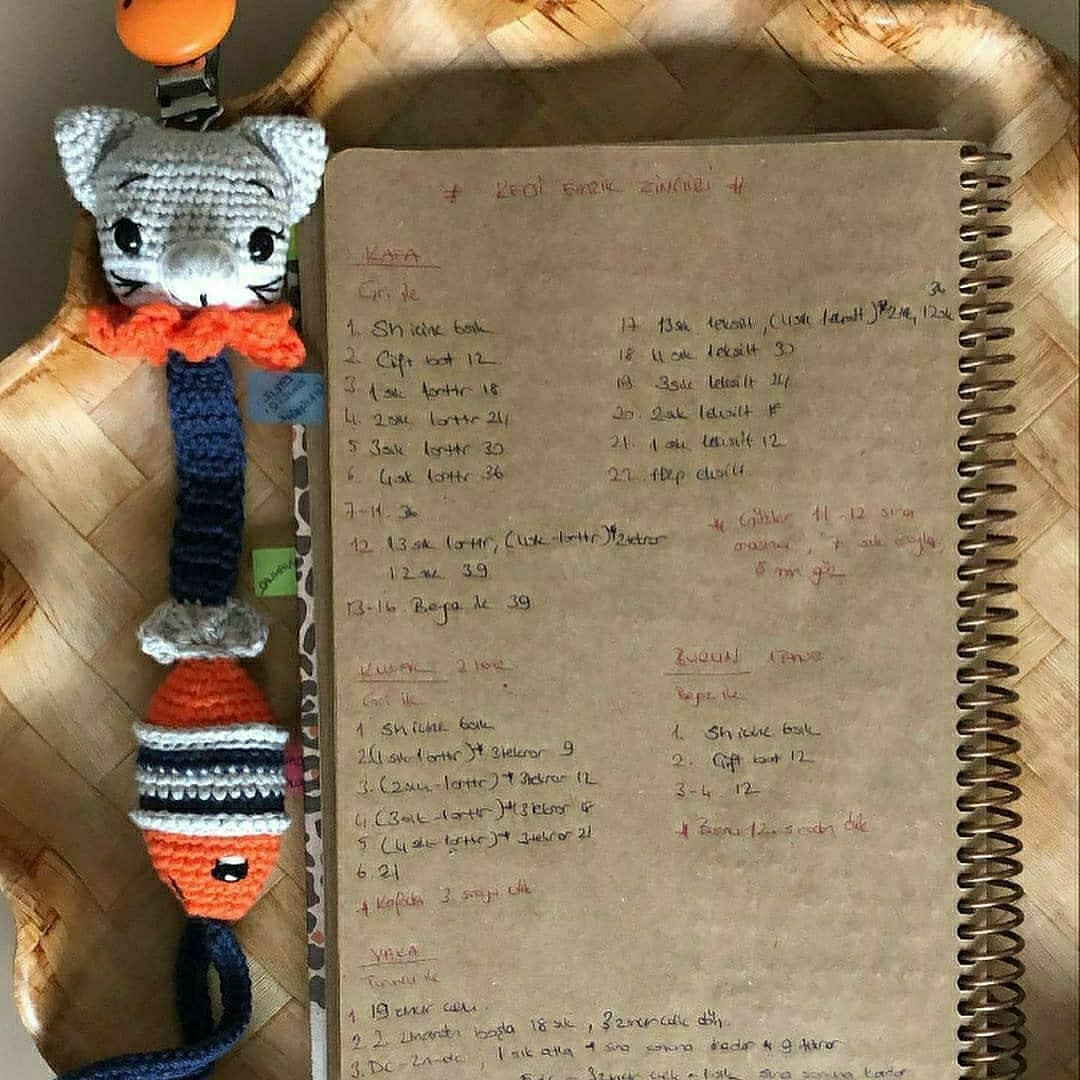 * KEDİ EMZİK ZİNCİRİ *
KAFA
Gri ile
1. Sh içine 6sık
2. Çift bat 12
3. 1 sık 1arttır 18
4. 2sık 1arttır 24
5 3sık 1arttır 30
6. 4sık 1arttır 36
7-11. 36
12. 13 sık 1arttır, (4sık-1arttır)*2tekrar
12 sık 39
13-16 Beyaz ile 39
36
17. 13sık 1eksilt, (4sık 1eksilt)*2tek, 12sık
18 4 sık 1eksilt 30
19. 3sık 1eksilt 24
20. 2sık 1eksilt 18
21. 1 sık 1eksilt 12
22. Hep eksilt
* Gözler 11-12 sıra
arasına, 7 sık arayla,
8 mm göz
KULAK 2 tane
Gri ile
1 sh içine 6sık
2.(1 sık-1arttır)* 3tekrar 9
3. (2sık-1arttır)* 3tekrar 12
4 (3sık-1arttır)*3tekrar 18
5 (4sık-1arttır)* 3tekrar 21
6. 21
* Kafada 3. sıraya dik
BURUN 1TANE
Beyaz ile
1. Sh içine 6sık
2. Çift bat 12
3-4 12
* Burnu 12. sıradan dik
YAKA
Turuncu ile
1. 19 zincir çek.
2. 2. zincirden başla 18 sık, 3 zincir çek dön.
3. Dc-2n-dc, 1 sık atla * sıra sonuna kadar * 9 tekrar
3zincir çek - 1sık sıra sonuna kadar